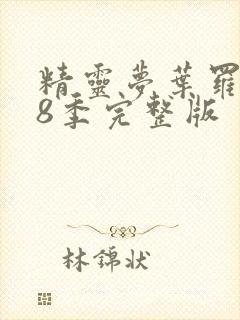 精靈夢葉羅
8季完整版
林錦狀